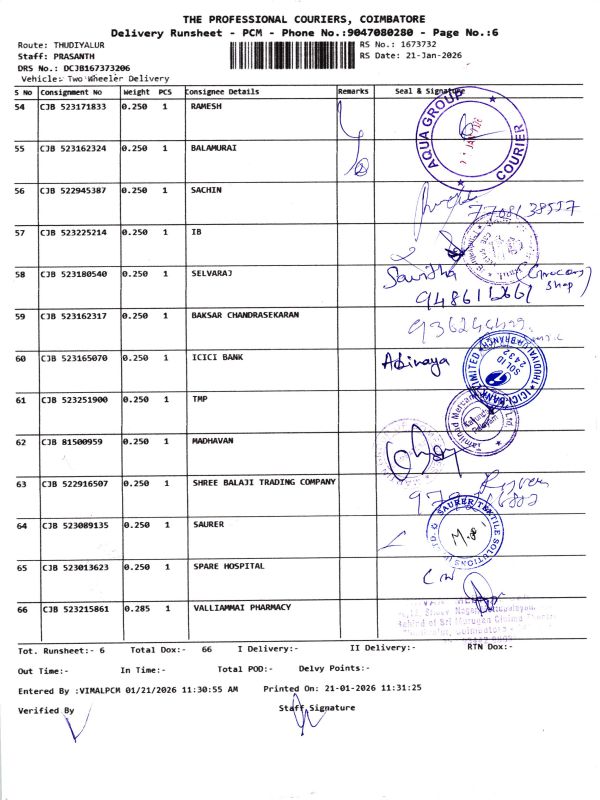 THE PROFESSIONAL COURIERS, COIMBATORE
Delivery Runsheet - PCM - Phone No.:9047080280 - Page No.:6
Route: THUDIYALUR
RS No.: 1673732
Staff: PRASANTH
RS Date: 21-Jan-2026
DRS No.: DCJB167373206
Vehicle:- Two Wheeler Delivery
S No Consignment No Weight PCS Consignee Details Remarks Seal & Signature
54 CJB 523171833 0.250 1 RAMESH
AQUA GROUP
COURIER
55 CJB 523162324 0.250 1 BALAMURAI
56 CJB 522945387 0.250 1 SACHIN
57 CJB 523225214 0.250 1 IB
58 CJB 523180540 0.250 1 SELVARAJ
Savitha (Grocery Shop)
59 CJB 523162317 0.250 1 BAKSAR CHANDRASEKARAN
60 CJB 523165070 0.250 1 ICICI BANK
Abinaya
ICICI BANK LIMITED
THUDIYALUR BRANCH
SOL ID
2432
61 CJB 523251900 0.250 1 TMP
62 CJB 81500959 0.250 1 MADHAVAN
63 CJB 522916507 0.250 1 SHREE BALAJI TRADING COMPANY
64 CJB 523089135 0.250 1 SAURER
SAURER TEXTILE SOLUTIONS
65 CJB 523013623 0.250 1 SPARE HOSPITAL
66 CJB 523215861 0.285 1 VALLIAMMAI PHARMACY
Behind of Sri Murugan
Tot. Runsheet:- 6 Total Dox:- 66 I Delivery:- II Delivery:- RTN Dox:-
Out Time:- In Time:- Total POD:- Delvy Points:-
Entered By :VIMALPCM 01/21/2026 11:30:55 AM Printed On: 21-01-2026 11:31:25
Verified By Staff Signature